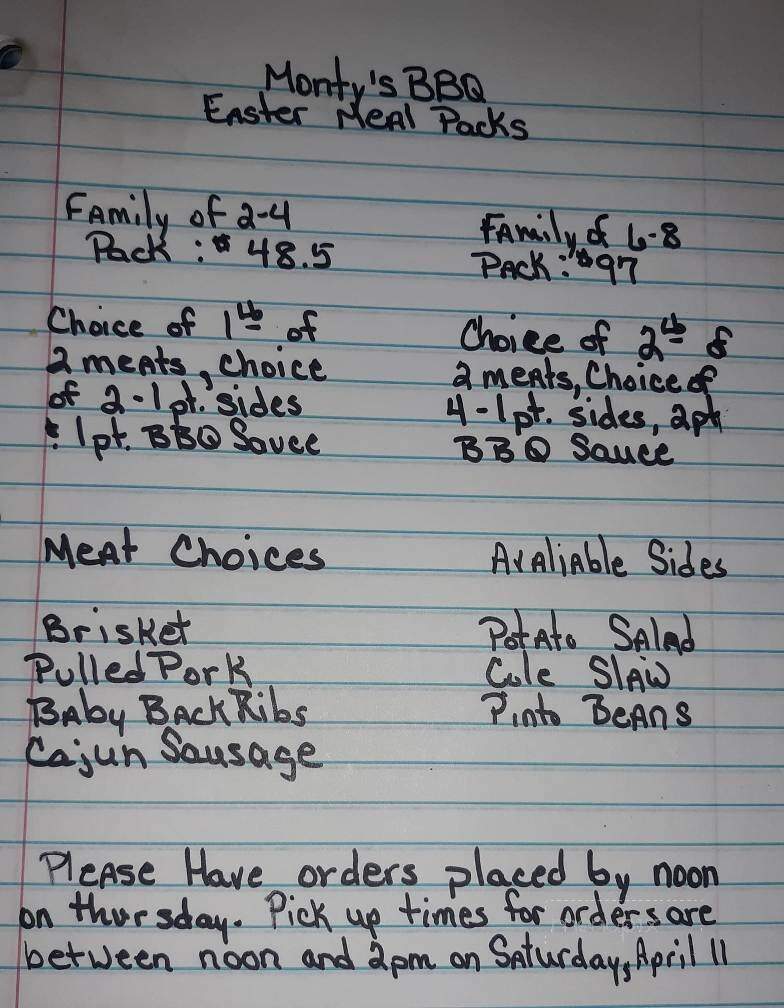 Monty's BBQ
Easter Meal Packs
Family of 2-4
Pack : $ 48.5
Choice of 1 lb of
2 meats, choice
of 2-1 pt. sides
& 1 pt. BBQ Sauce
Family of 6-8
Pack : $97
Choice of 2 lb of
2 meats, Choice of
4-1 pt. sides, 2 pt
BBQ Sauce
Meat Choices
Brisket
Pulled Pork
Baby Back Ribs
Cajun Sausage
Avaliable Sides
Potato Salad
Cole Slaw
Pinto Beans
Please Have orders placed by noon
on thursday. Pick up times for orders are
between noon and 2pm on Saturday, April 11